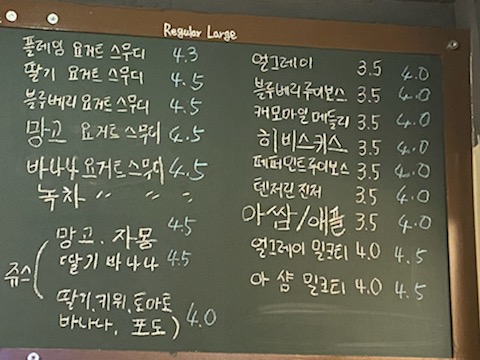 Regular Large
플레인 요거트 스무디 4.3
딸기 요거트 스무디 4.5
블루베리 요거트 스무디 4.5
망고 요거트 스무디 4.5
바나나 요거트 스무디 4.5
녹차 〃 〃 〃
쥬스
망고, 자몽 4.5
딸기 바나나 4.5
딸기, 키위, 토마토
바나나, 포도 4.0
얼그레이 3.5 4.0
블루베리 루이보스 3.5 4.0
캐모마일 메들리 3.5 4.0
히비스커스 3.5 4.0
페퍼민트 루이보스 3.5 4.0
텐저린 진저 3.5 4.0
아쌈/애플 3.5 4.0
얼그레이 밀크티 4.0 4.5
아 샴 밀크티 4.0 4.5